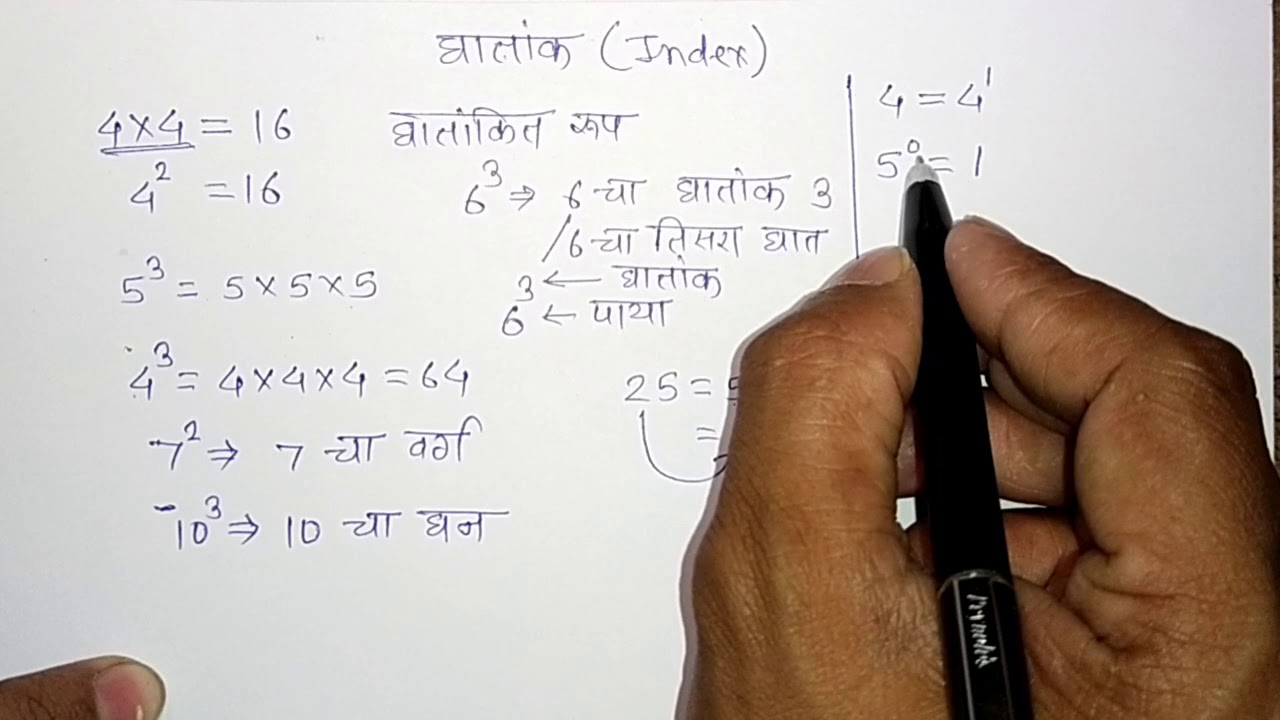 घातांक (Index)
4×4 = 16
4² = 16
5³ = 5×5×5
4³ = 4×4×4 = 64
7² ⇒ 7 चा वर्ग
10³ ⇒ 10 चा घन
घातांकित रूप
6³ ⇒ 6 चा घातांक 3
/6 चा तिसरा घात
3 ← घातांक
6 ← पाया
25 = 5
=
4 = 4¹
5⁰ = 1